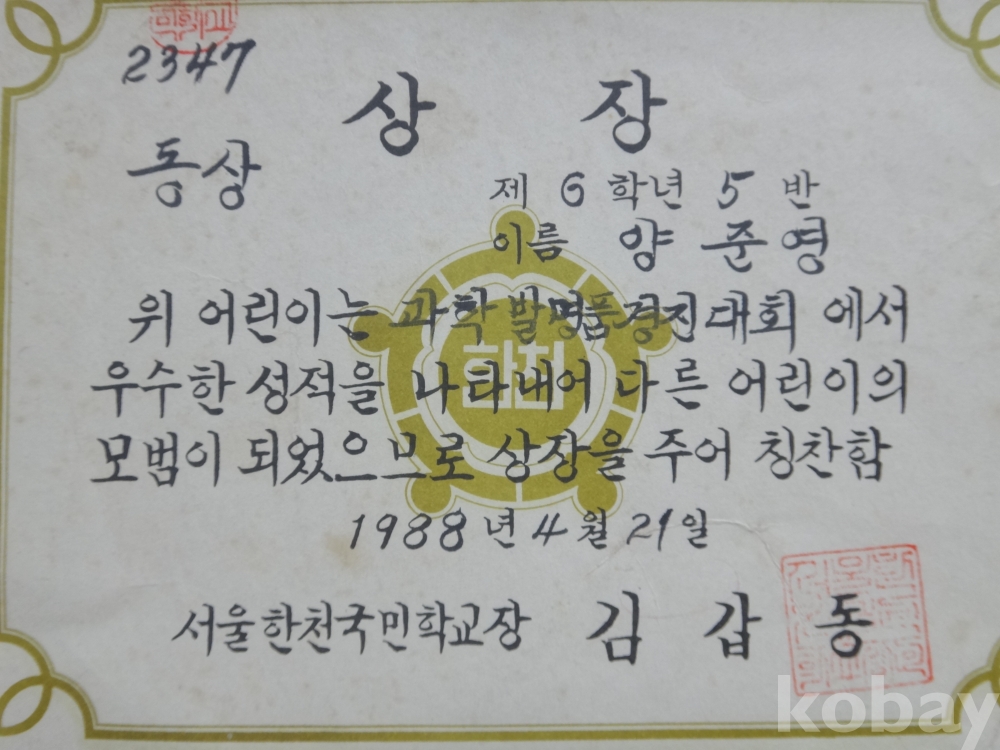 2347
상 장
동상
제 6 학년 5 반
이름 양 준 영
위 어린이는 과학발명품경진대회 에서
한천
우수한 성적을 나타내어 다른 어린이의
모범이 되었으므로 상장을 주어 칭찬함
1988 년 4 월 21 일
서울한천국민학교장 김 갑 동
kobay